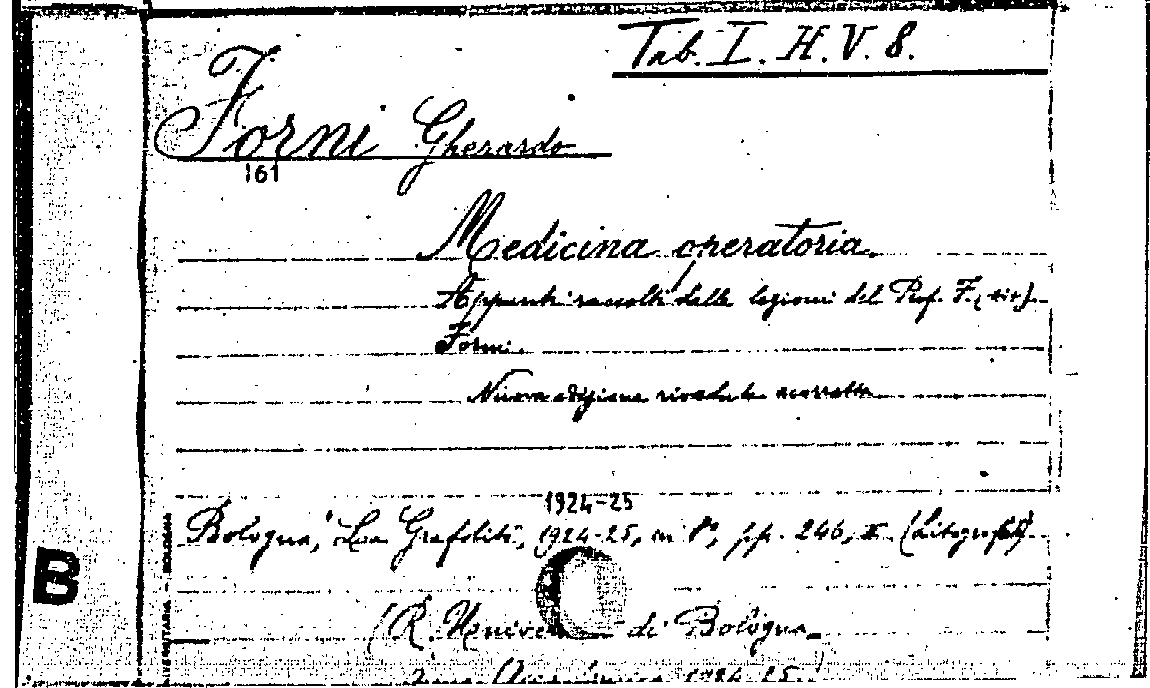 Tab. I. H. V. 8.
Forni Gherardo
161
Medicina operatoria.
Appunti raccolti dalle lezioni del Prof. F. (sic)
Forni.
Nuova edizione riveduta e corretta
1924-25
Bologna, La Grafolito, 1924-25, in 8°, pp. 246, (Litografato).
B
(R. di Bologna
1924-25)